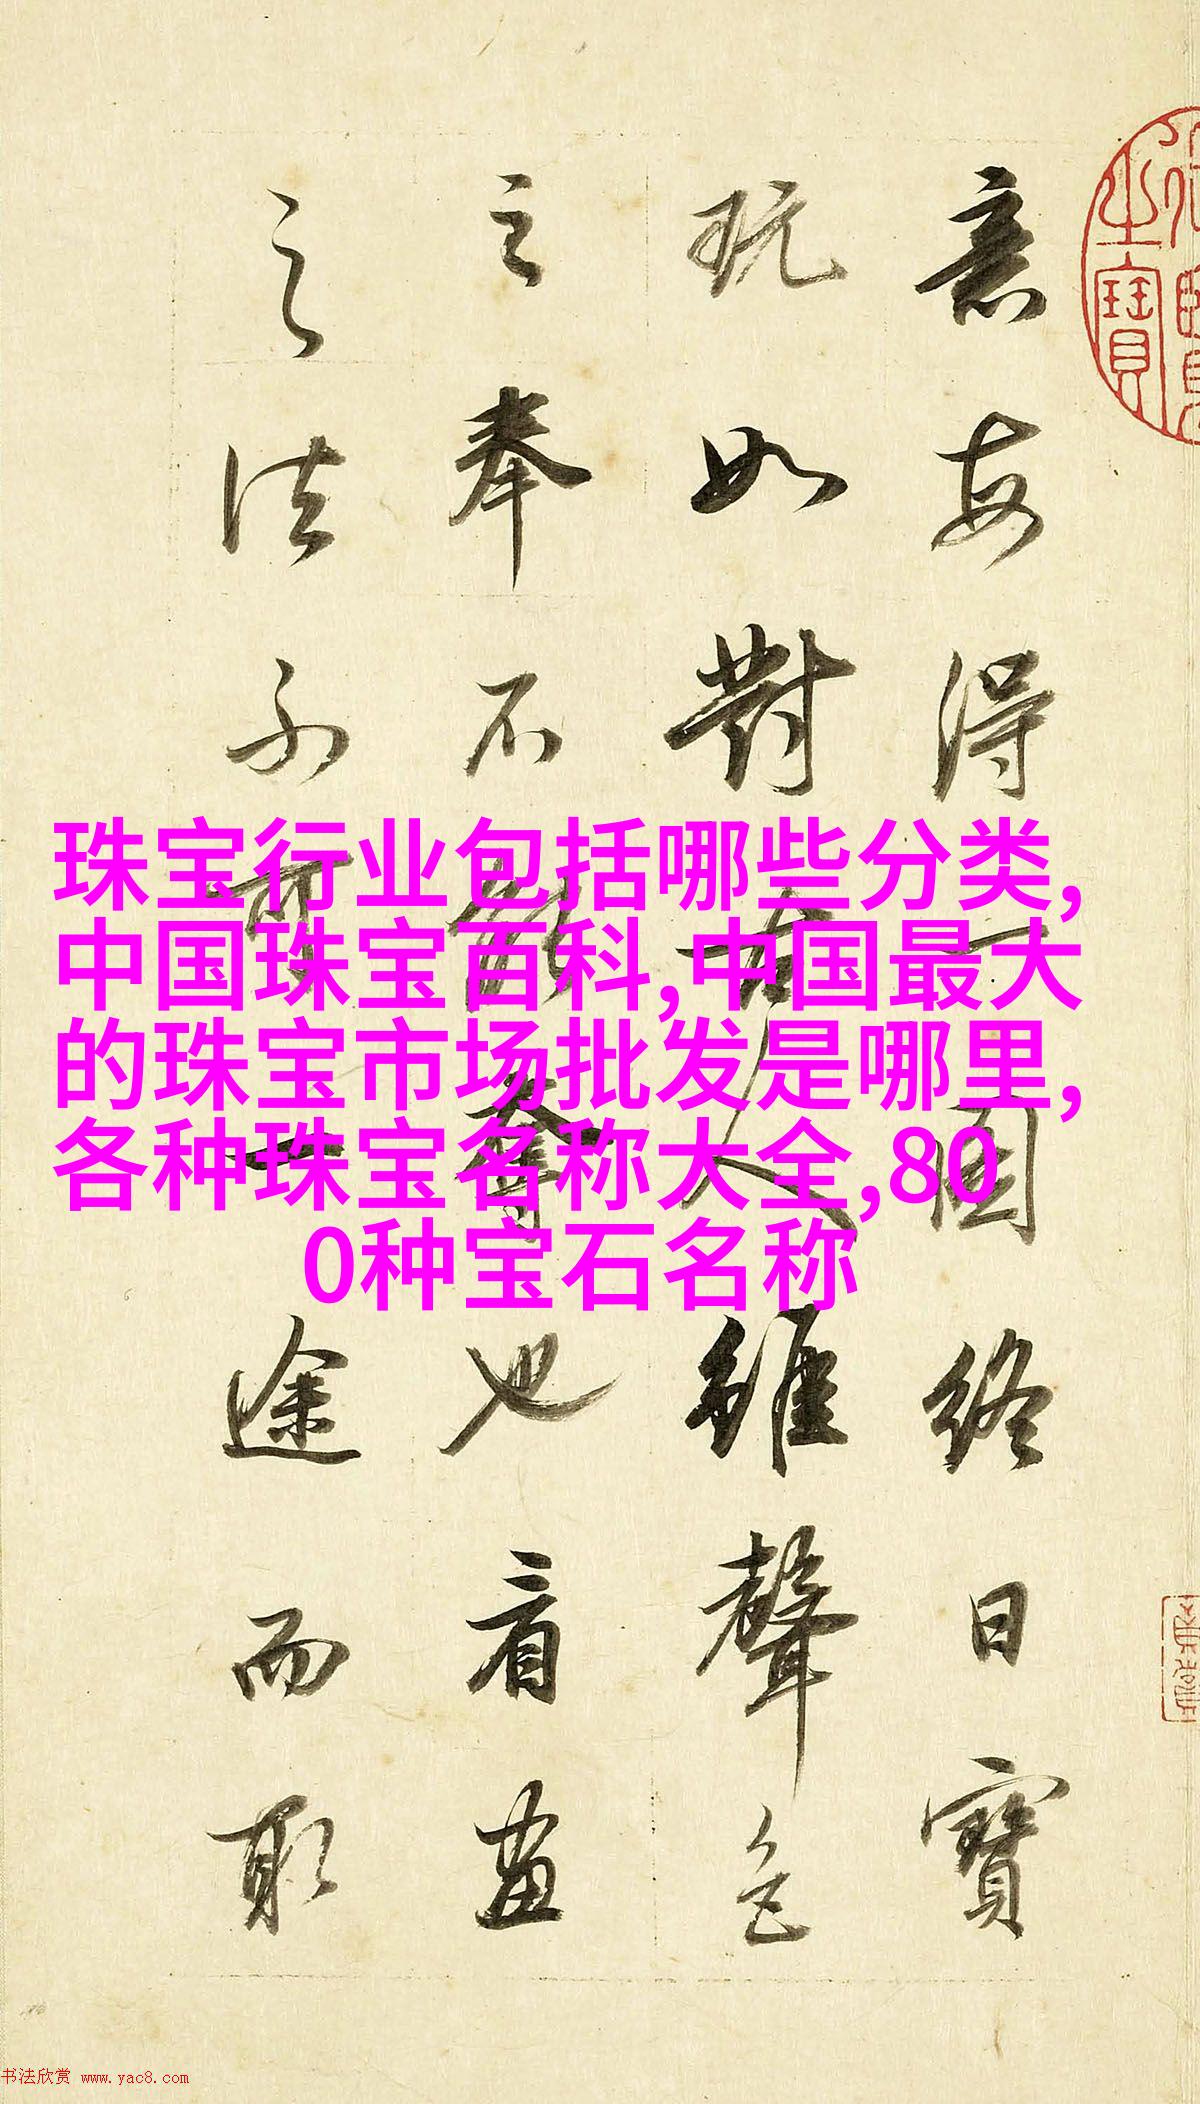 意每得一圖終日寶
玩如對古人雖聲色
之奉不能奪也看畫
之法不可一途而取
珠宝行业包括哪些分类,
中国珠宝百科,中国最大
的珠宝市场批发是哪里,
各种珠宝名称大全,80
0种宝石名称
书法欣赏 www.yac8.com